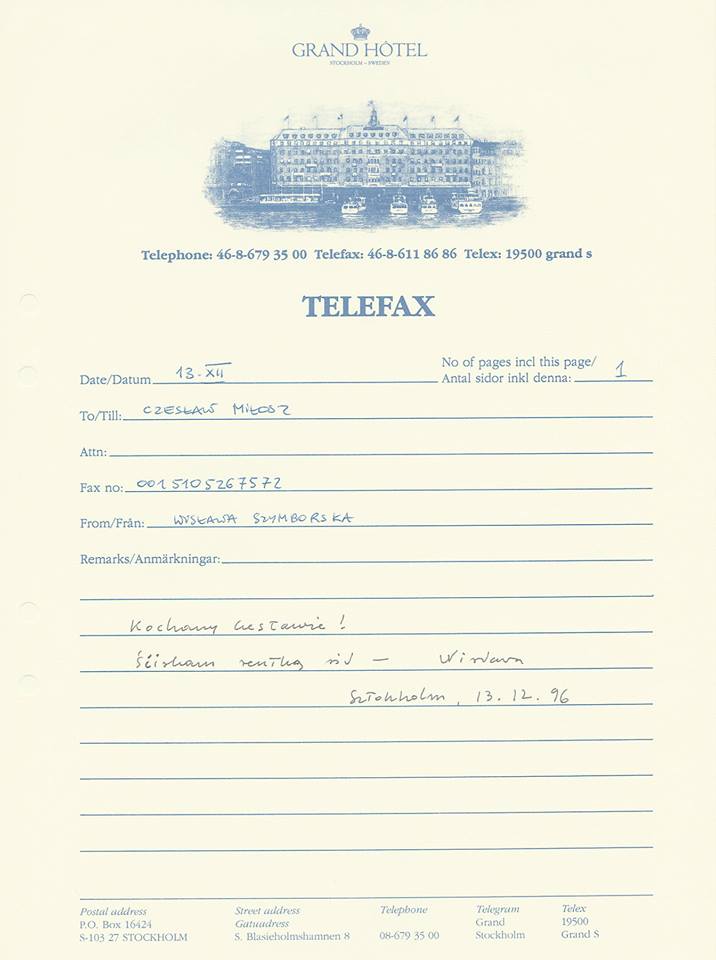 GRAND HÔTEL
STOCKHOLM – SWEDEN
Telephone: 46-8-679 35 00 Telefax: 46-8-611 86 86 Telex: 19500 grand s
TELEFAX
Date/Datum 13. XII
No of pages incl this page/
Antal sidor inkl denna: 1
To/Till: CZESŁAW MIŁOSZ
Attn:
Fax no: 001 5105267572
From/Från: WISŁAWA SZYMBORSKA
Remarks/Anmärkningar:
Kochany Czesławie!
Ściskam resztką sił — Wisława
Sztokholm, 13. 12. 96
Postal address
P.O. Box 16424
S-103 27 STOCKHOLM
Street address
Gatuadress
S. Blasieholmshamnen 8
Telephone
08-679 35 00
Telegram
Grand
Stockholm
Telex
19500
Grand S